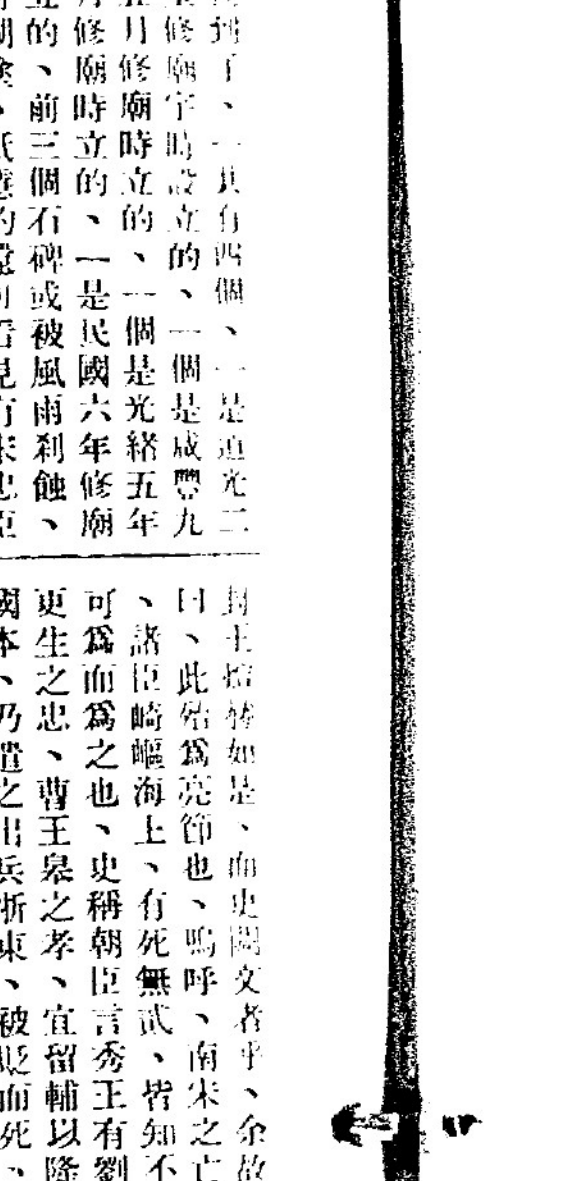 到了、一共有四個、一是道光二
修廟宇時設立的、一個是咸豐九
月修廟時立的、一個是光緒五年
修廟時立的、一是民國六年修廟
的、前三個石碑或被風雨剎蝕、
如是、而史闕文者乎、余故
曰、此殆為亮節也、嗚呼、南宋之亡
、諸臣崎嶇海上、有死無貳、皆知不
可爲而爲之也、史稱朝臣言秀王有劉
更生之忠、曹王皋之孝、宜留輔以隆
國本、乃遣之出兵浙東、被貶而死、